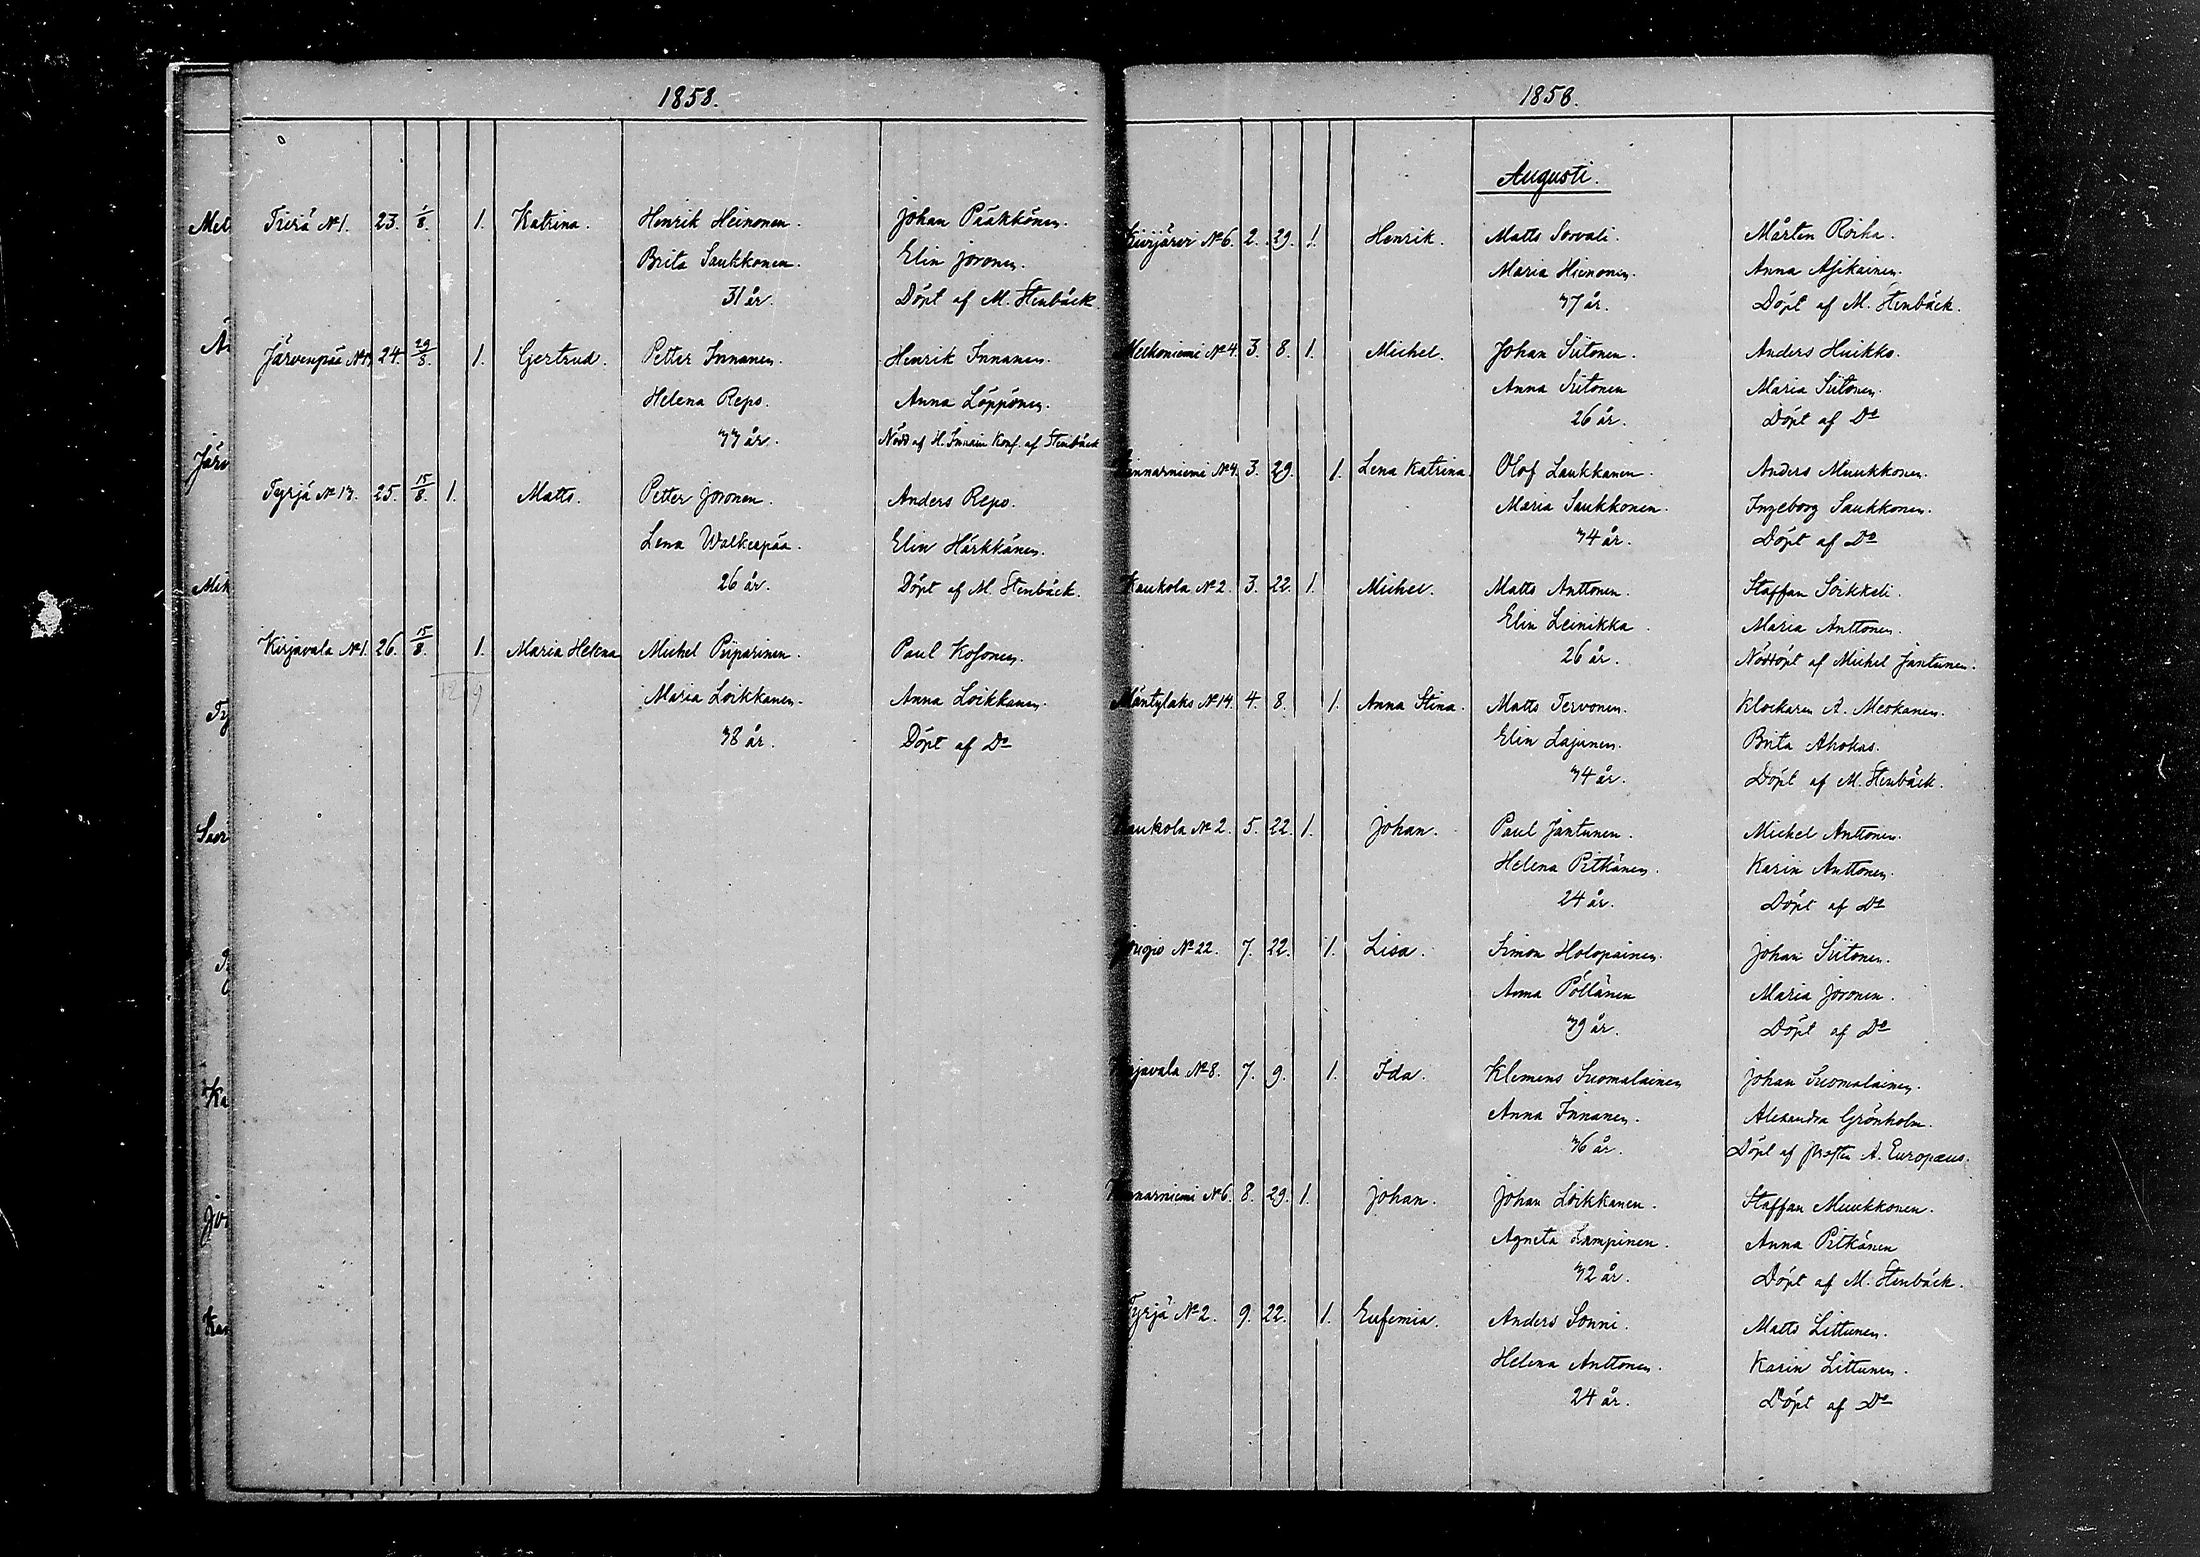 1858.
Tiviä № 1. 23. 1/8. 1. Katrina. Henrik Heinonen. Johan Pääkkönen.
Brita Saukkonen. Elin Joronen.
31 år. Döpt af M. Stenbäck.
Järvenpää 24. 29/8. 1. Gertrud. Petter Innanen. Henrik Innanen.
Helena Repo. Anna Löppönen.
33 år. Nödd af H. Innain Konf. af Stenbäck
Tyrjä № 13. 25. 15/8. 1. Matts. Petter Joronen. Anders Repo.
Lena Walkeapää. Elin Härkkänen.
26 år. Döpt af M. Stenbäck.
Kirjavala № 1. 26. 15/8. 1. Maria Helena Michel Piiparinen. Paul Kosonen.
12 9
Maria Loikkanen. Anna Loikkanen.
38 år. Döpt af Do
1858.
Augusti.
№ 6. 2. 29. 1. Henrik. Matts Sorvali. Mårten Roiha.
Maria Hienonen. Anna Asikainen.
37 år. Döpt af M. Stenbäck.
Mechoniemi № 4. 3. 8. 1. Michel. Johan Siitonen. Anders Huikko.
Anna Siitonen Maria Siitonen.
26 år. Döpt af Do
№ 4. 3. 29. 1. Lena Katrina Olof Laukkanen. Anders Muukkonen.
Maria Saukkonen. Ingeborg Saukkonen.
34 år. Döpt af Do
Kaukola № 2. 3. 22. 1. Michel. Matts Anttonen. Staffan Soikkeli.
Elin Leinikka. Maria Anttonen.
26 år. Nöddöpt af Michel Jantunen.
Mäntylaks № 14. 4. 8. 1. Anna Stina. Matts Tervonen. Klockaren A. Meskanen.
Elin Lajunen. Brita Ahokas.
34 år. Döpt af M. Stenbäck.
Kaukola № 2. 5. 22. 1. Johan. Paul Jantunen. Michel Anttonen.
Helena Pitkänen. Karin Anttonen.
24 år. Döpt af Do
№ 22. 7. 22. 1. Lisa. Simon Holopainen. Johan Siitonen.
Anna Pöllänen Maria Joronen.
39 år. Döpt af Do
Kirjavala № 8. 7. 9. 1. Ida. Klemens Suomalainen Johan Suomalainen.
Anna Innanen. Alexandra Grönholm.
36 år. Döpt af A. Europæus.
№ 6. 8. 29. 1. Johan. Johan Loikkanen. Staffan Muukkonen.
Agneta Lampinen. Anna Pitkänen
32 år. Döpt af M. Stenbäck.
Tyrjä № 2. 9. 22. 1. Eufemia. Anders Sonni. Matts Littunen.
Helena Anttonen. Karin Littunen.
24 år. Döpt af Do